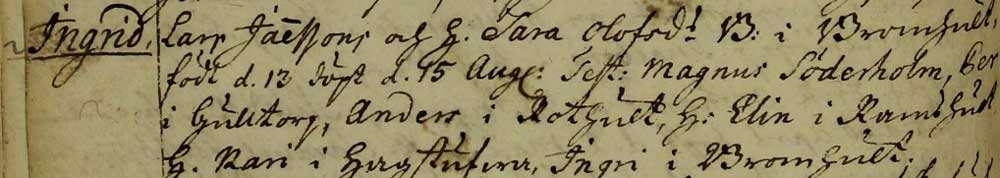 Ingrid, Lars Jaēssons och H. Sara Olofsdr B: i Bromhult,
född d. 13 döpt d. 15 Aug: Test: Magnus Söderholm, Ber
i Gulltorp, Anders i Rothult, H: Elin i Ramshult
H. Kari i Hagstufwa, Ingri i Bromhult.